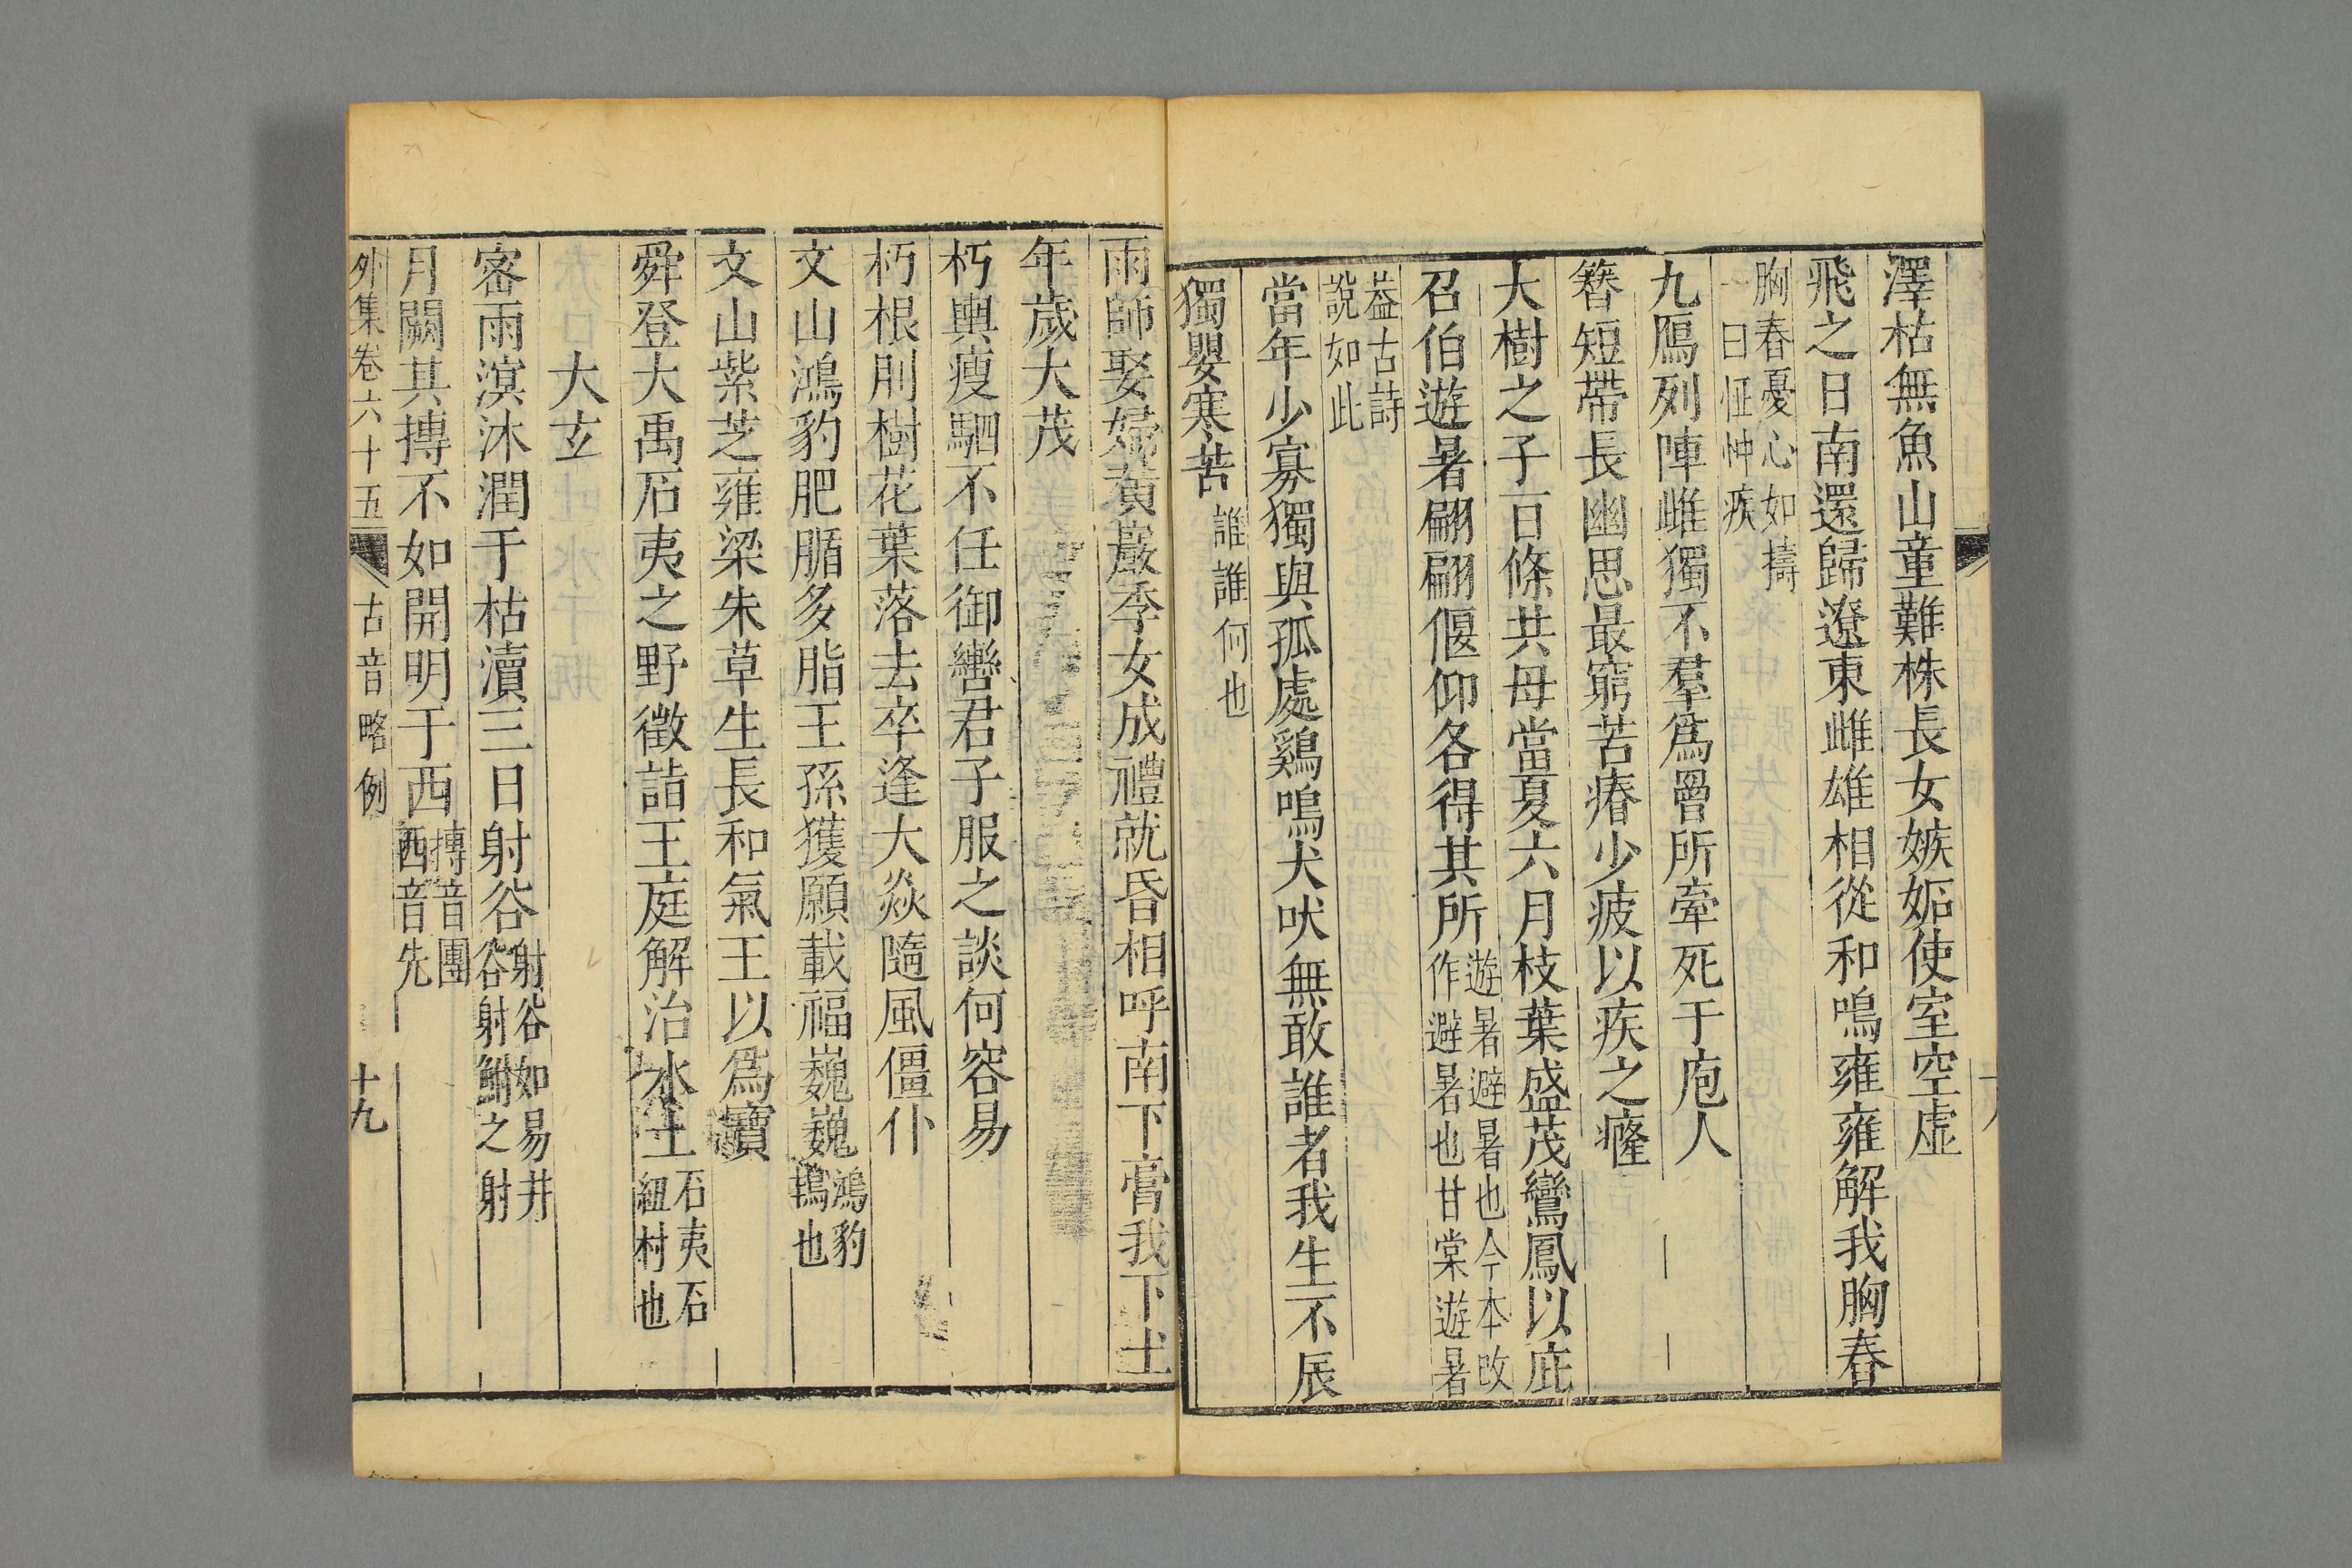 澤枯無魚山童難株長女嫉妬使室空虛
飛之日南還歸遼東雌雄相從和鳴雍雍解我胸舂
胸舂憂心如擣
一曰怔忡疾
九鴈列陣雌獨不羣爲罾所牽死于庖人
簪短帶長幽思最窮苦瘠少疲以疾之癃
大樹之子百條共母當夏六月枝葉盛茂鸞鳳以庇
召伯遊暑翩翩偃仰各得其所
遊暑避暑也今本改
作避暑也甘棠遊暑
蓋古詩
說如此
當年少寡獨與孤處鷄鳴犬吠無敢誰者我生不辰
獨嬰寒苦
誰誰何也
雨師娶婦黃巖季女成禮就昏相呼南下膏我下土
年歲大茂
朽輿瘦駟不任御轡君子服之談何容易
朽根刖樹花葉落去卒逢大焱隨風僵仆
文山鴻豹肥腯多脂王孫獲願載福巍巍
鴻豹
鴇也
文山紫芝雍梁朱草生長和氣王以爲寶
舜登大禹石夷之野徵詣王庭解治水土
石夷石
紐村也
大玄
密雨溟沐潤于枯瀆三日射谷
射谷如易井
谷射鮒之射
月闕其摶不如開明于西
摶音團
西音先
外集卷六十五
古音略例
十九